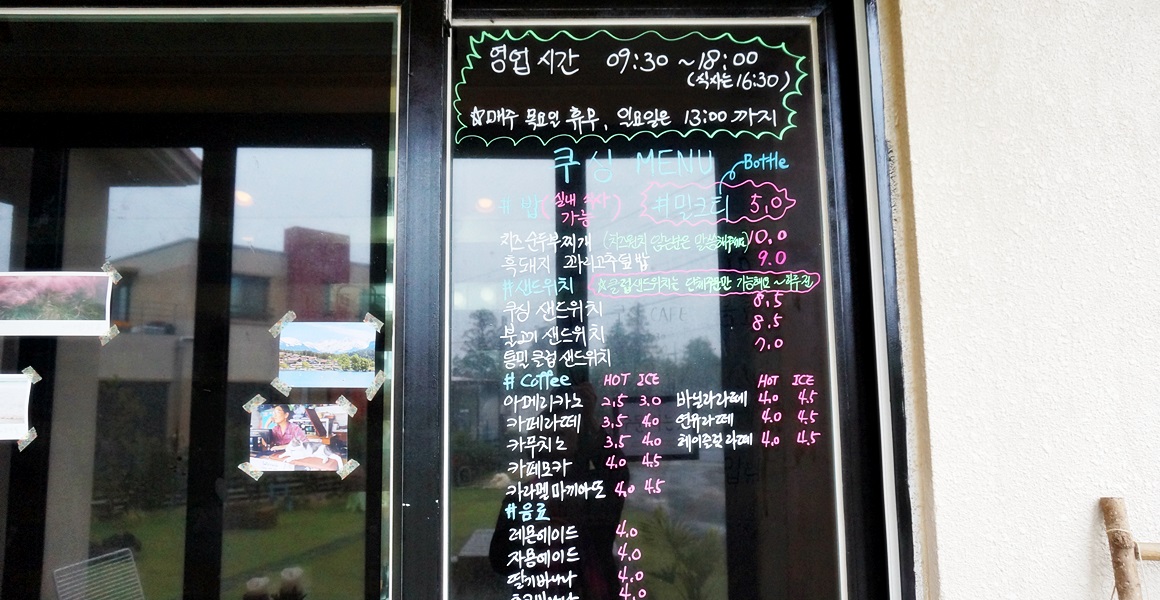 영업 시간 09:30 ~ 18:00
(식사는 16:30)
☆매주 목요일 휴무, 일요일은 13:00 까지
쿠싱 MENU Bottle
# 밥 (실내 식사 가능) #밀크티 5.0
치즈순두부찌개 (치즈원치 않는분은 말씀해주세요) 10.0
흑돼지 꽈리고추덮밥 9.0
#샌드위치 ☆클럽샌드위치는 단체주문만 가능해요~하루전
쿠싱 샌드위치 8.5
불고기 샌드위치 8.5
통밀 클럽 샌드위치 7.0
# Coffee HOT ICE HOT ICE
아메리카노 2.5 3.0 바닐라라떼 4.0 4.5
카페라떼 3.5 4.0 연유라떼 4.0 4.5
카푸치노 3.5 4.0 헤이즐넛 라떼 4.0 4.5
카페모카 4.0 4.5
카라멜 마끼아또 4.0 4.5
#음료
레몬에이드 4.0
자몽에이드 4.0
딸기바나나 4.0
4.0